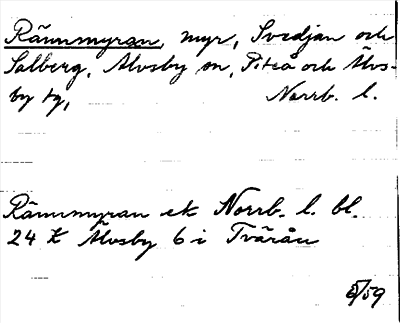 Rännmyran, myr, Svedjan och
Salberg, Älvsby sn, Piteå och Älvs-
by tg, Norrb. l.
Rännmyran ek Norrb. l. bl.
24 Älvsby 6 i Tvärån
5/59